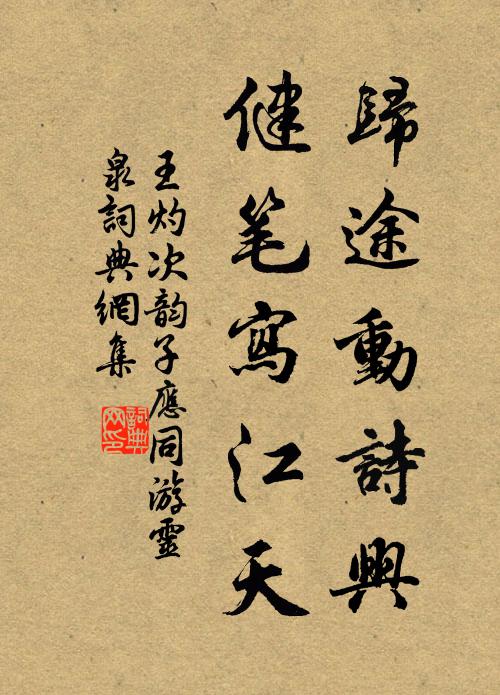 歸途動詩興
健笔寫江天
王灼次韵子應同游靈
泉詞典網集
詞典网印